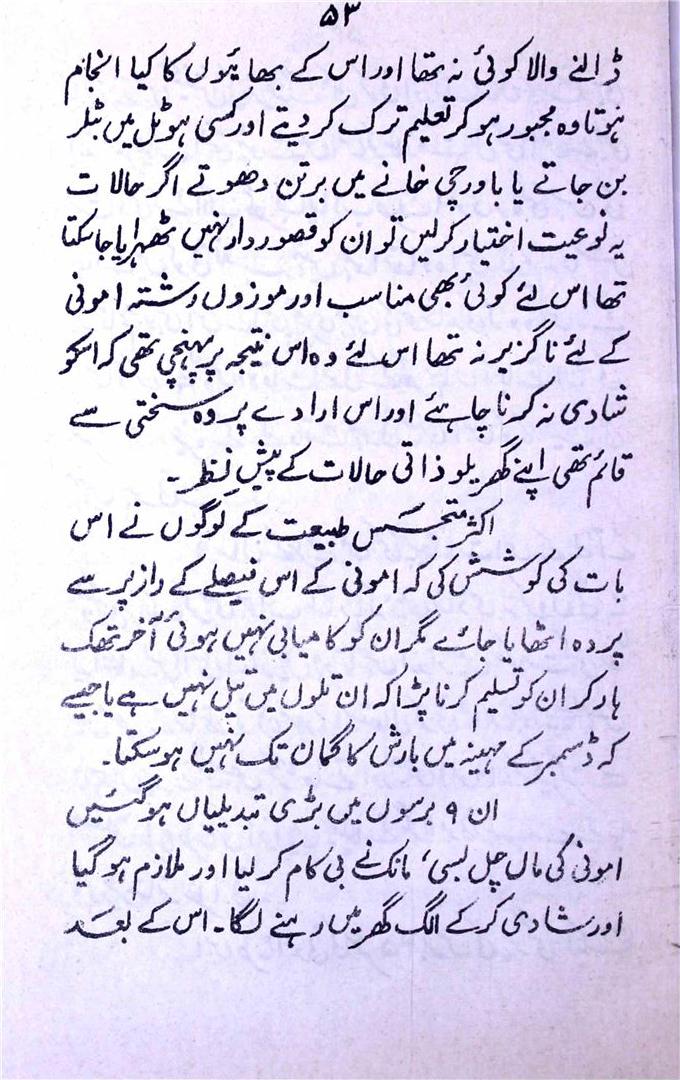 ۵۳
ڈالنے والا کوئی نہ تھا اور اس کے بھائیوں کا کیا انجام
ہوتا وہ مجبور ہو کر تعلیم ترک کر دیتے اور کسی ہوٹل میں بٹلر
بن جاتے یا باورچی خانے میں برتن دھوتے اگر حالات
یہ نوعیت اختیار کرلیں تو ان کو قصور دار نہیں ٹھہرایا جاسکتا
تھا اس لئے کوئی بھی مناسب اور موزوں رشتہ امونی
کے لئے ناگزیر نہ تھا اس لئے وہ اس نتیجہ پر پہنچی تھی کہ اسکو
شادی نہ کرنا چاہئے اور اس ارادے پر وہ سختی سے
قائم تھی اپنے گھریلو ذاتی حالات کے پیشِ نظر۔
اکثر متجسس طبیعت کے لوگوں نے اس
بات کی کوشش کی کہ امونی کے اس فیصلے کے راز پر سے
پردہ اٹھایا جائے مگر ان کو کامیابی نہیں ہوئی آخر تھک
ہار کر ان کو تسلیم کرنا پڑا کہ ان تلوں میں تیل نہیں ہے یا جیسے
کہ ڈسمبر کے مہینہ میں بارش کا گمان تک نہیں ہوسکتا۔
ان ۹ برسوں میں بڑی تبدیلیاں ہوگئیں
امونی کی ماں چل بسی، مانک نے بی کام کرلیا اور ملازم ہوگیا
اور شادی کرکے الگ گھر میں رہنے لگا۔ اس کے بعد